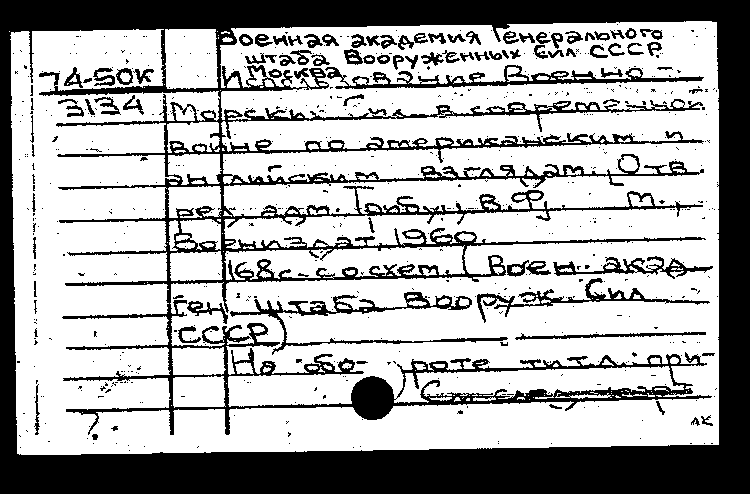 Военная академия Генерального
штаба Вооруженных Сил СССР
Москва
74-50К Использование Военно-
3134 Морских Сил в современной
войне по американским и
английским взглядам. [Отв.
ред. адм. Трибуц, В.Ф. М.,
Воениздат, 1960.
168 с. с о схем. (Воен. акад
Ген. штаба Вооруж. Сил
СССР)
На обо- роте тит.л.: при-
См. след. карт